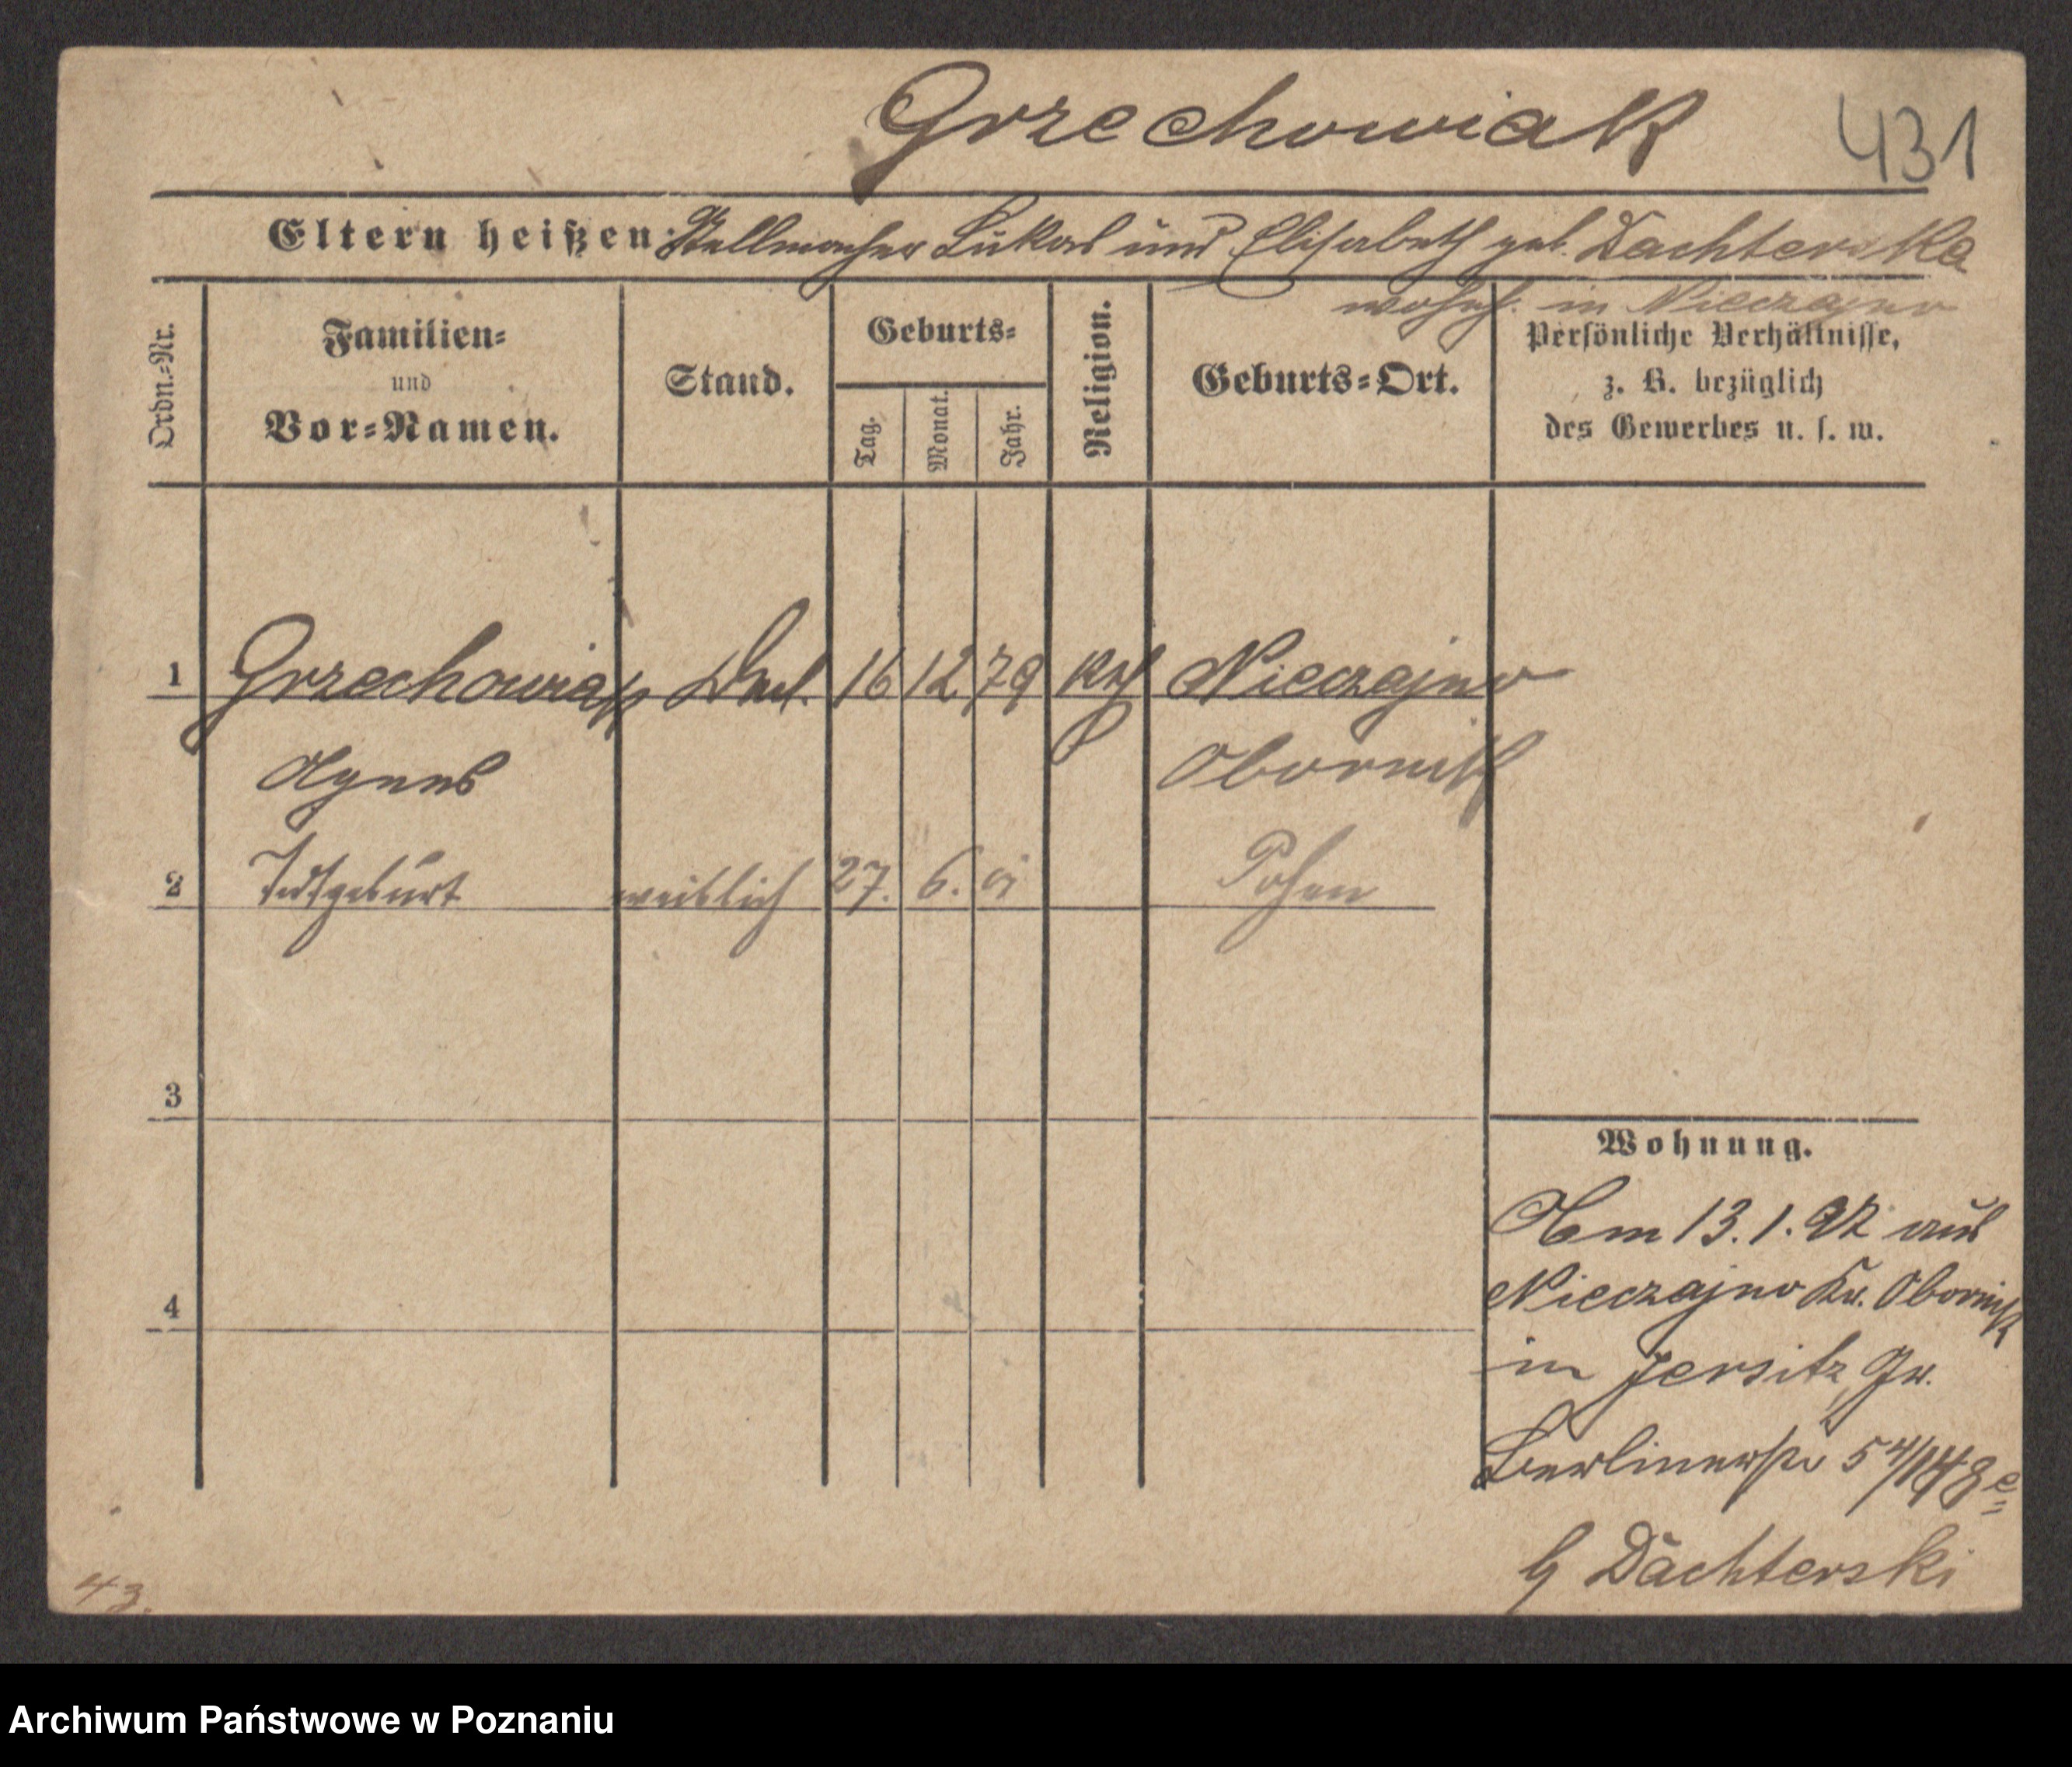 Grzechowiak
431
Eltern heißen: Stellmacher Lukas und Elisabeth geb. Dachterska
wohnh. in Nieczajno
Ordn.-Nr.
Familien- und Vor-Namen.
Stand.
Geburts-
Tag.
Monat.
Jahr.
Religion.
Geburts-Ort.
Persönliche Verhältnisse,
z. B. bezüglich
des Gewerbes u. s. w.
1 Grzechowiak 16 12 79 kth Nieczajno
Agnes Obornik
2 Todtgeburt weiblich 27. 6. 01 Posen
3
4
Wohnung.
Am 13.1.97 aus
Nieczajno Kr. Obornik
in Jersitz, Gr.
Berlinerstr 54/148e
b Dachterski
43.
Archiwum Państwowe w Poznaniu